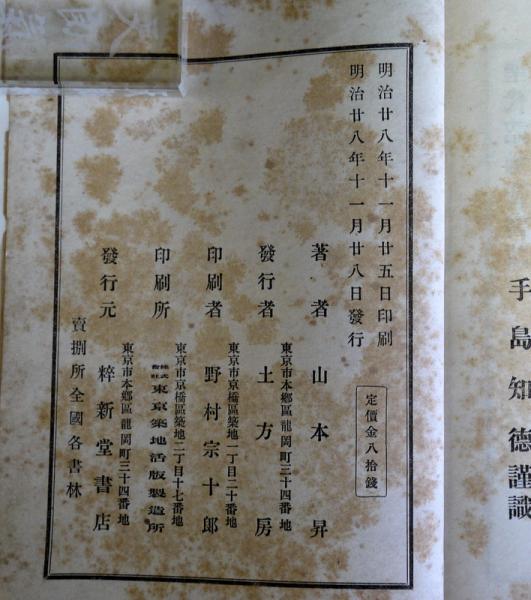 手島知德謹識
明治廿八年十一月廿五日印刷
明治廿八年十一月廿八日發行
定價金八拾錢
著者 山本昇
東京市本鄕區龍岡町三十四番地
發行者 土方房
東京市京橋區築地一丁目二十番地
印刷者 野村宗十郎
東京市京橋區築地二丁目十七番地
印刷所 株式會社東京築地活版製造所
東京市本鄕區龍岡町三十四番地
發行元 粹新堂書店
賣捌所全國各書林